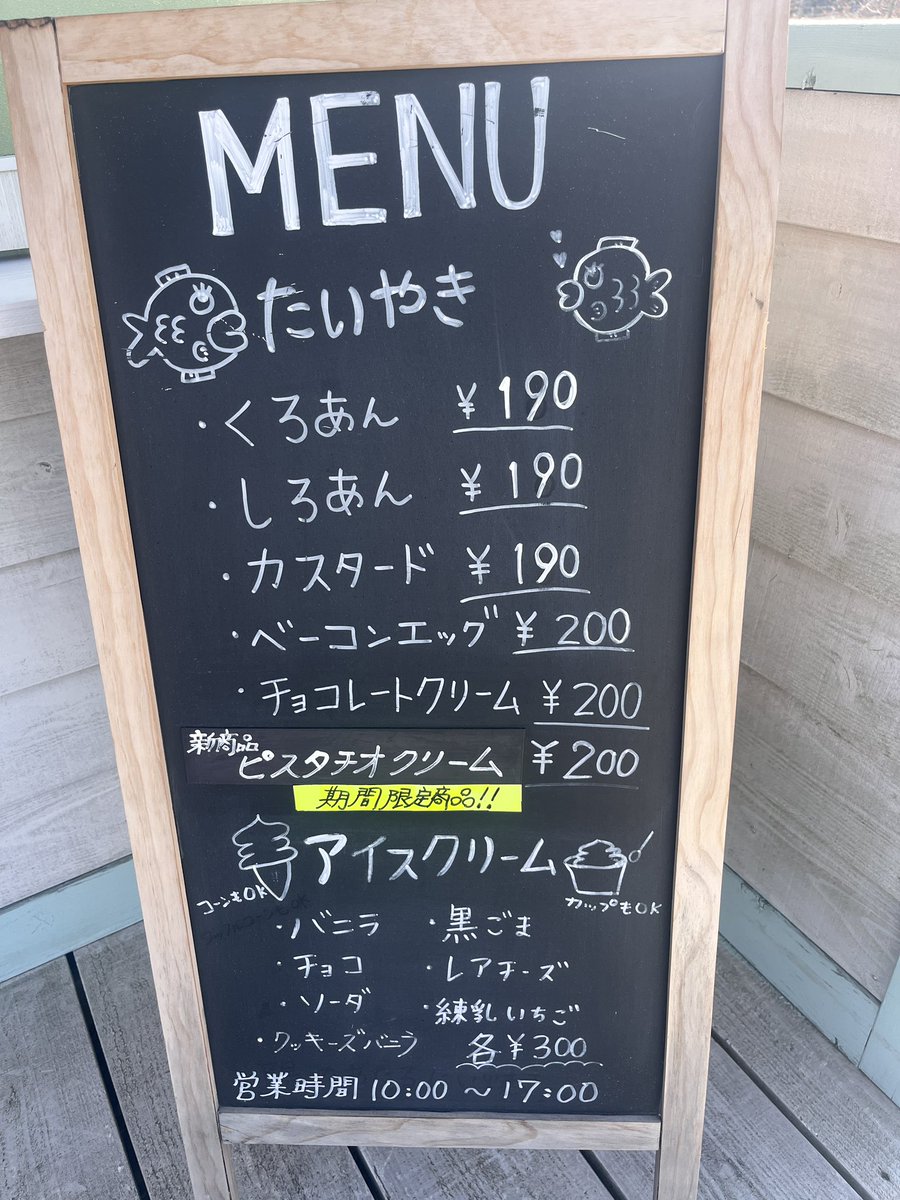 MENU
たいやき
・くろあん ¥190
・しろあん ¥190
・カスタード ¥190
・ベーコンエッグ ¥200
・チョコレートクリーム ¥200
新商品
ピスタチオクリーム ¥200
期間限定商品!!
アイスクリーム
コーンもOK
カップもOK
・バニラ ・黒ごま
・チョコ ・レアチーズ
・ソーダ ・練乳いちご
・クッキーズバニラ 各¥300
営業時間10:00 〜17:00